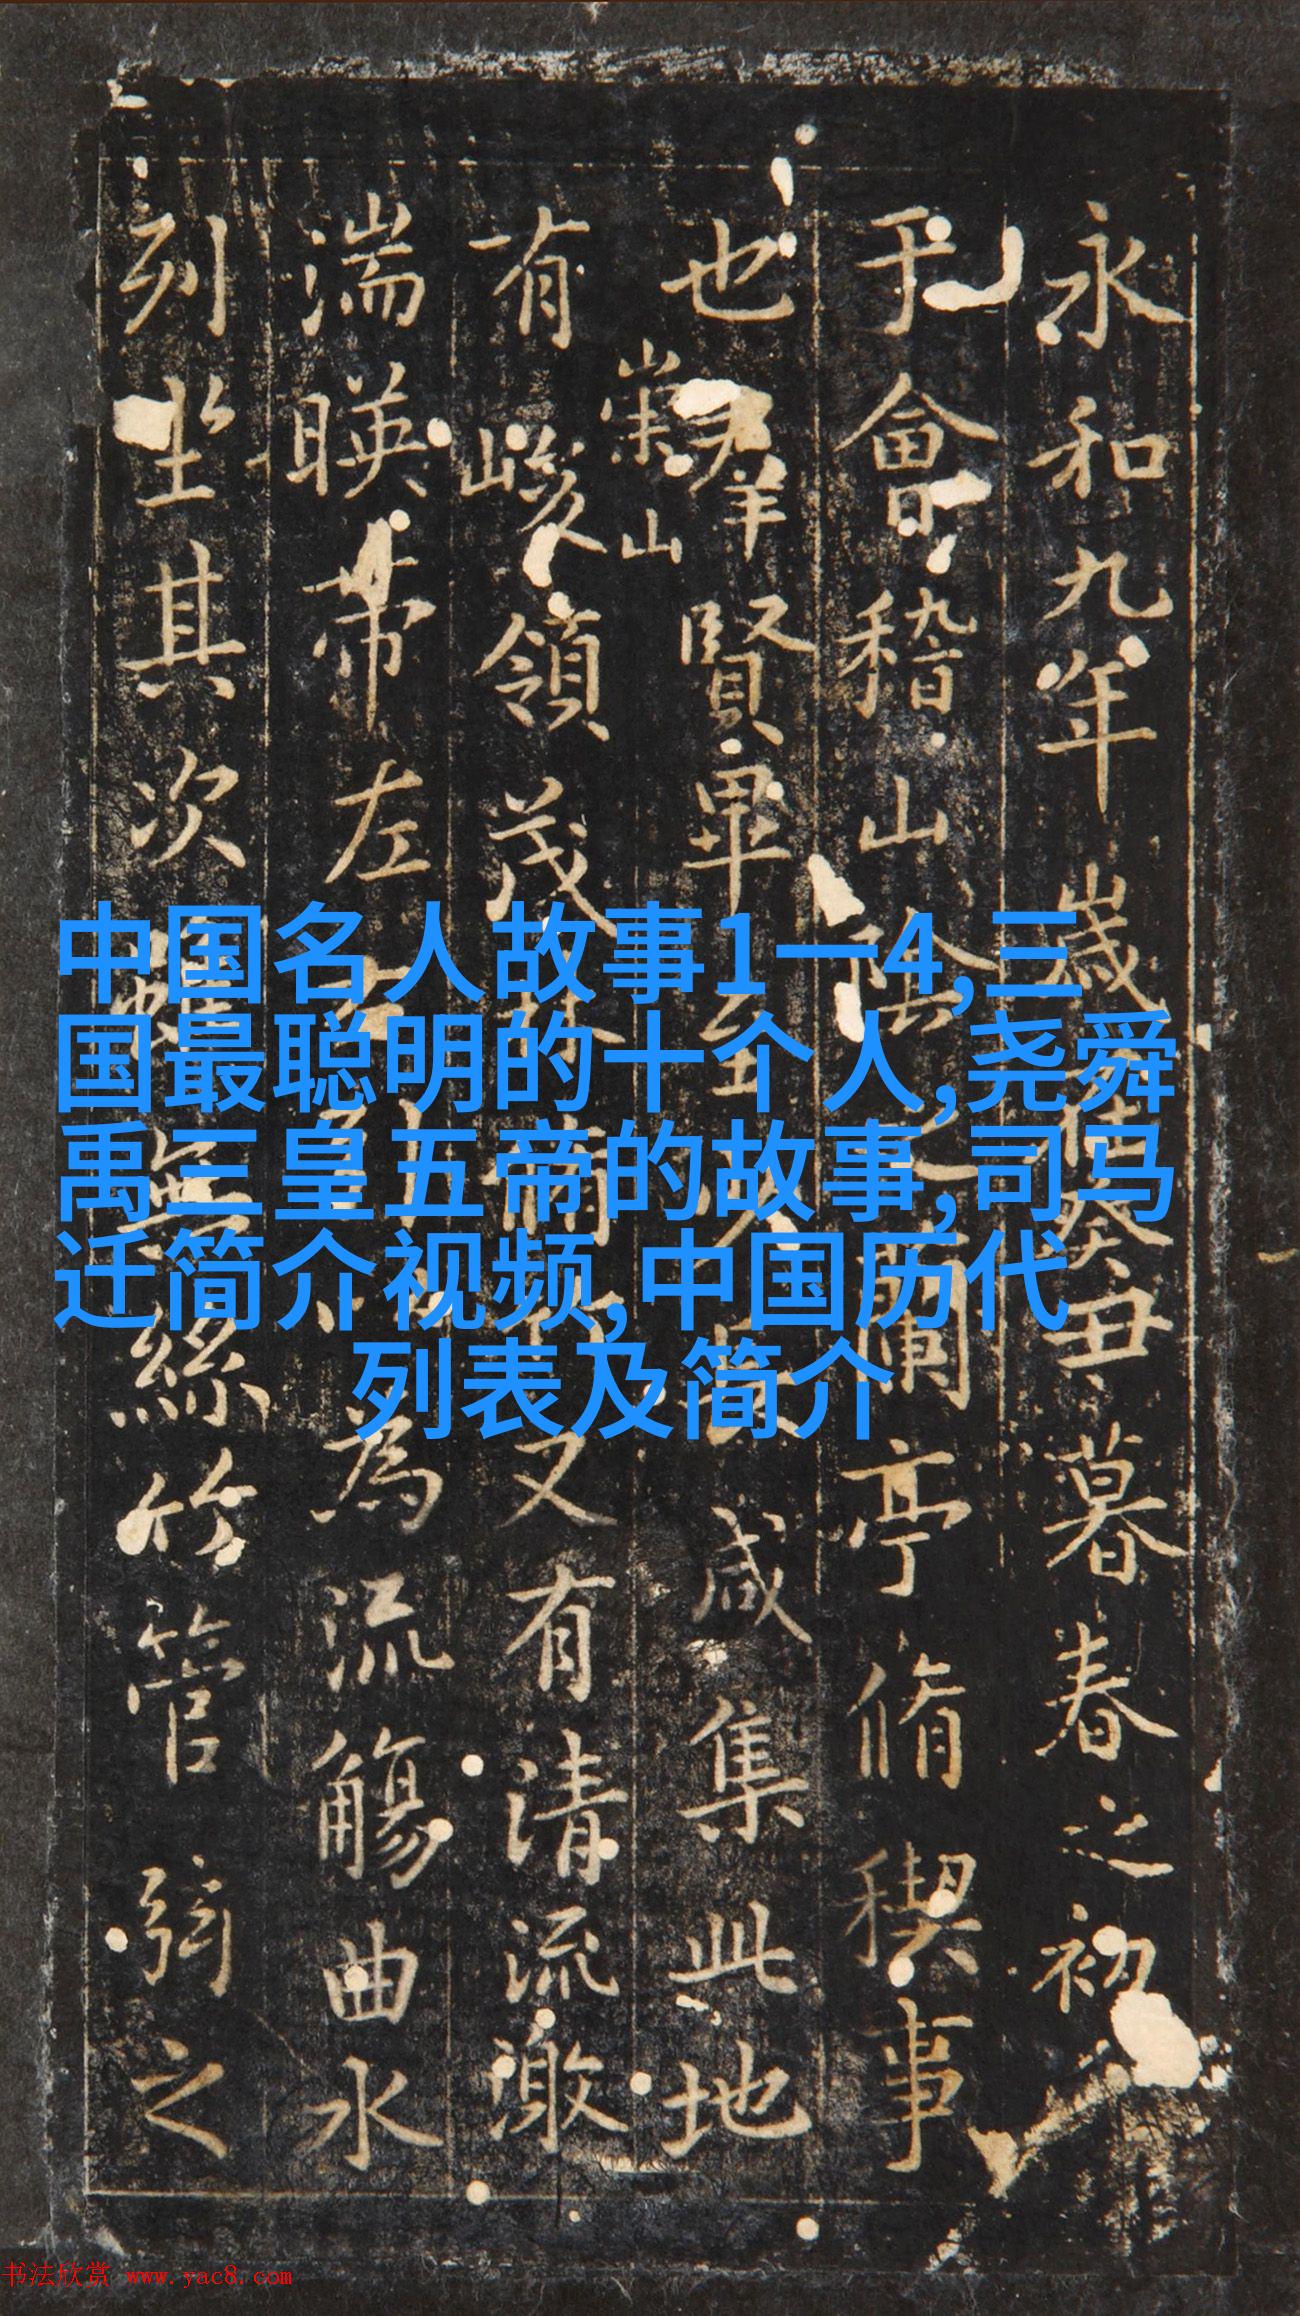 永和九年歲在癸丑暮春之初
于會稽山陰之蘭亭脩稧事
也羣賢畢至少長咸集此地
崇山
有峻領茂林脩竹又有清流激
湍暎帶左右引以為流觴曲水
列坐其次雖無絲竹管弦之
中国名人故事1一4,三
国最聪明的十个人,尧舜
禹三皇五帝的故事,司马
迁简介视频,中国历代
列表及简介
书法欣赏 www.yac8.com